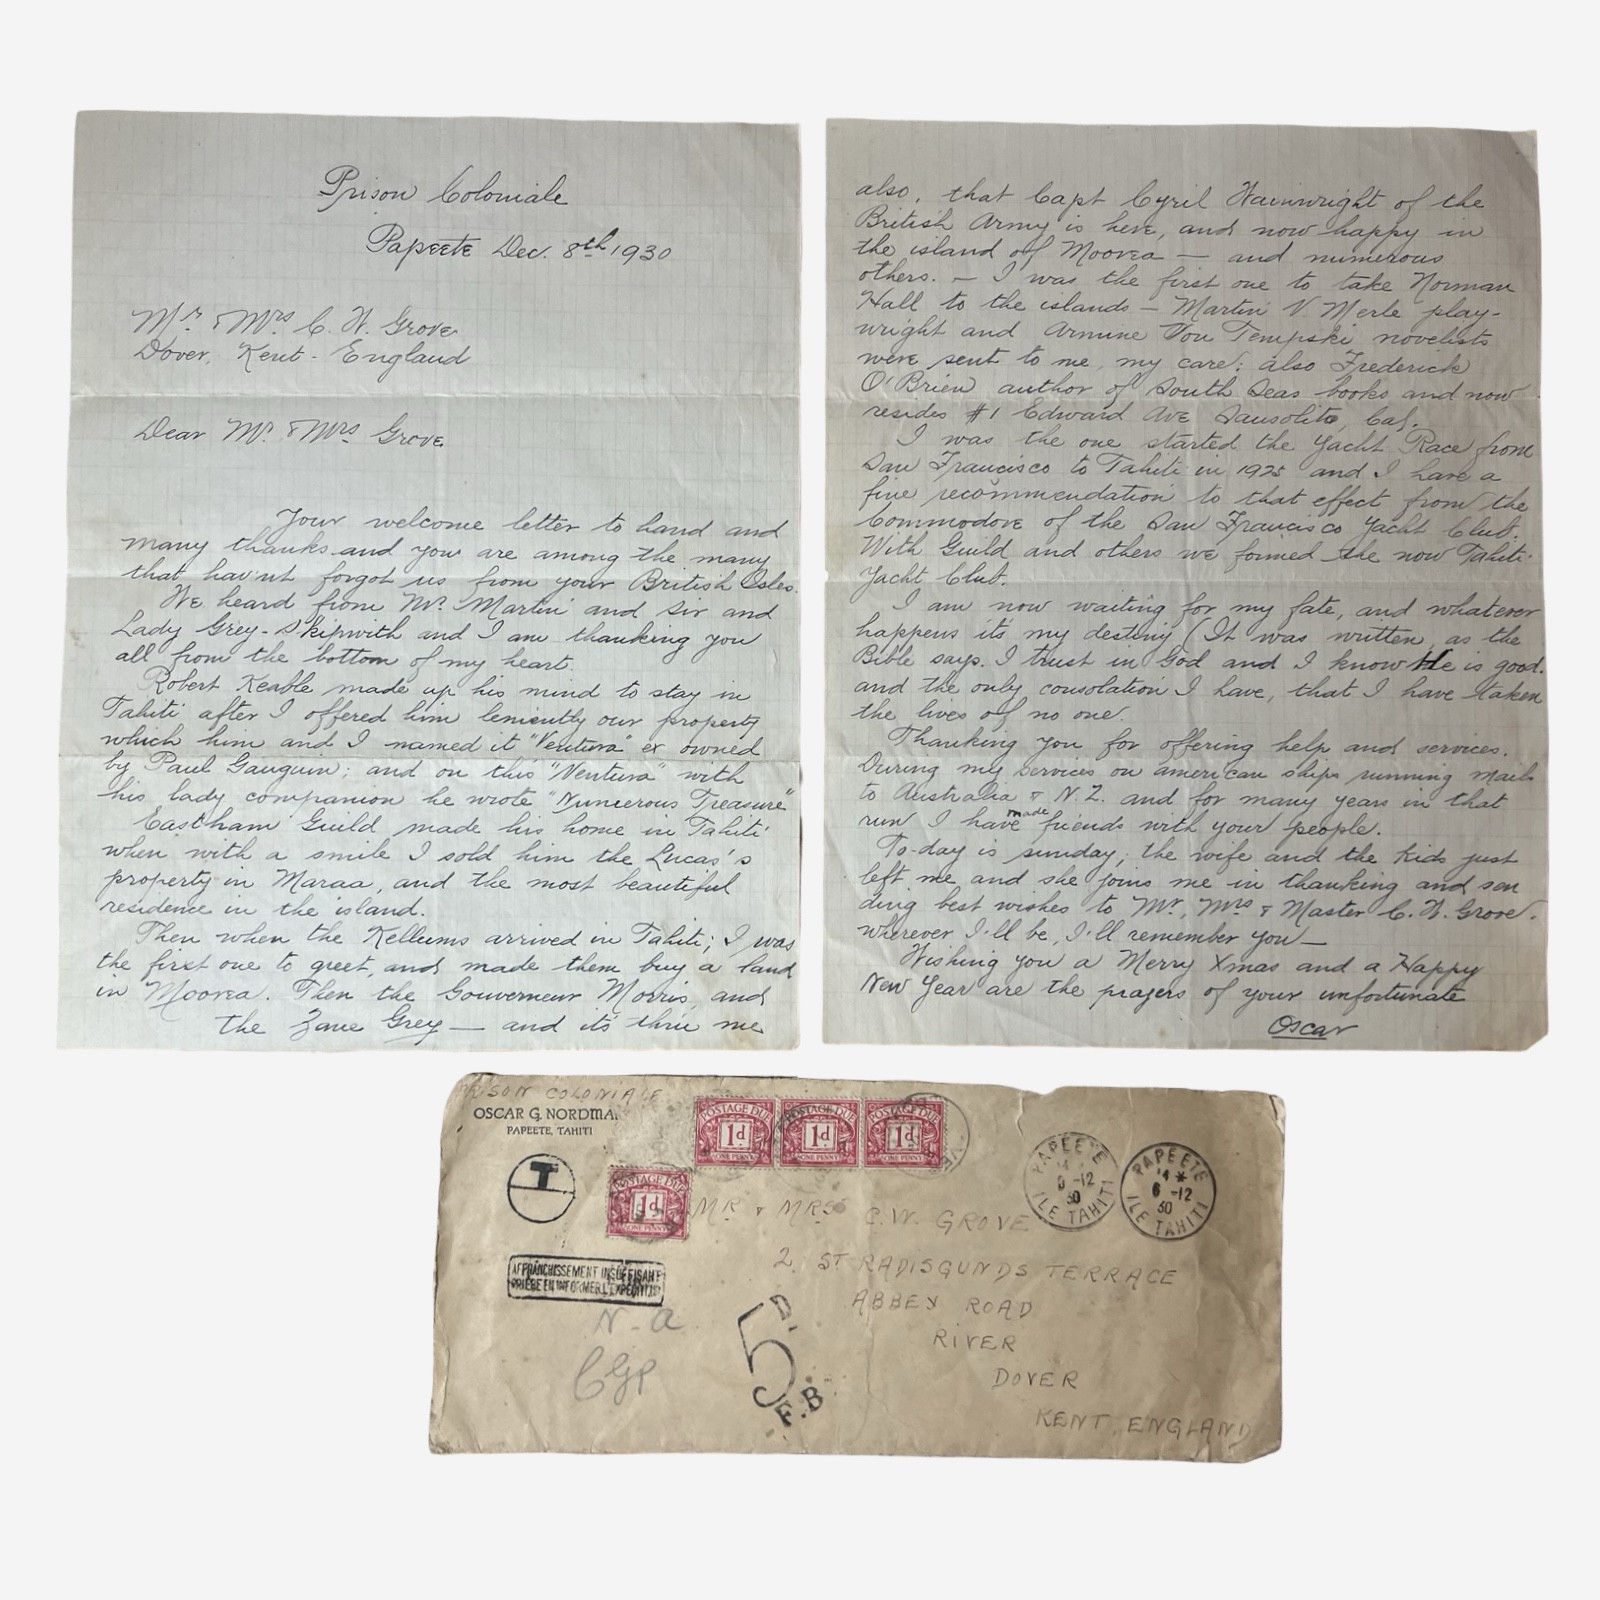 Prison Coloniale
Papeete Dec. 8th 1930
Mr & Mrs C. W. Grove
Dover, Kent - England
Dear Mr & Mrs Grove
Your welcome letter to hand and
many thanks and you are among the many
that hav'nt forgot us from your British Isles.
We heard from Mr. Martin and Sir and
Lady Grey-Skipwith and I am thanking you
all from the bottom of my heart.
Robert Keable made up his mind to stay in
Tahiti after I offered him leniently our property
which him and I named it "Ventura" ex owned
by Paul Gauguin; and on this "Ventura" with
his lady companion he wrote "Numerous Treasure"
Eastham Guild made his home in Tahiti
when with a smile I sold him the Lucas's
property in Maraa, and the most beautiful
residence in the island.
Then when the Kellums arrived in Tahiti; I was
the first one to greet, and made them buy a land
in Moorea. Then the Gouverneur Morris, and
the Zane Grey — and its thru me
also, that Capt Cyril Wainwright of the
British Army is here, and now happy in
the island of Moorea — and numerous
others. — I was the first one to take Norman
Hall to the islands — Martin V. Merle play-
wright and Armine Von Tempski novelists
were sent to me, my care; also Frederick
O'Brien author of South Seas books and now
resides #1 Edward Ave Sausolito, Cal.
I was the one started the Yacht Race from
San Francisco to Tahiti in 1925 and I have a
fine recommendation to that effect from the
Commodore of the San Francisco Yacht Club.
With Guild and others we formed the now Tahiti
Yacht Club.
I am now waiting for my fate, and whatever
happens its my destiny (It was written, as the
Bible says. I trust in God and I know He is good.
and the only consolation I have, that I have taken
the lives of no one.
Thanking you for offering help and services.
During my services on american ships running mails
to Australia & N.Z. and for many years in that
run I have made friends with your people.
To-day is sunday; the wife and the kids just
left me and she joins me in thanking and sen
ding best wishes to Mr, Mrs & Master C. W. Grove.
wherever I'll be, I'll remember you —
Wishing you a Merry Xmas and a Happy
New Year are the prayers of your unfortunate
Oscar
PRISON COLONIALE
OSCAR G. NORDMA
PAPEETE, TAHITI
T
POSTAGE DUE 1d ONE PENNY
POSTAGE DUE 1d ONE PENNY
POSTAGE DUE 1d ONE PENNY
POSTAGE DUE 1d ONE PENNY
PAPEETE 14 6 -12 30 ILE TAHITI
PAPEETE 14 * 6 -12 30 ILE TAHITI
MR & MRS C.W. GROVE
2. ST RADISGUNDS TERRACE
ABBEY ROAD
RIVER
DOVER
KENT, ENGLAND
AFFRANCHISSEMENT INSUFFISANT
PRIÈRE EN INFORMER L'EXPÉDITEUR
N - a
CGP
5D.
F.B